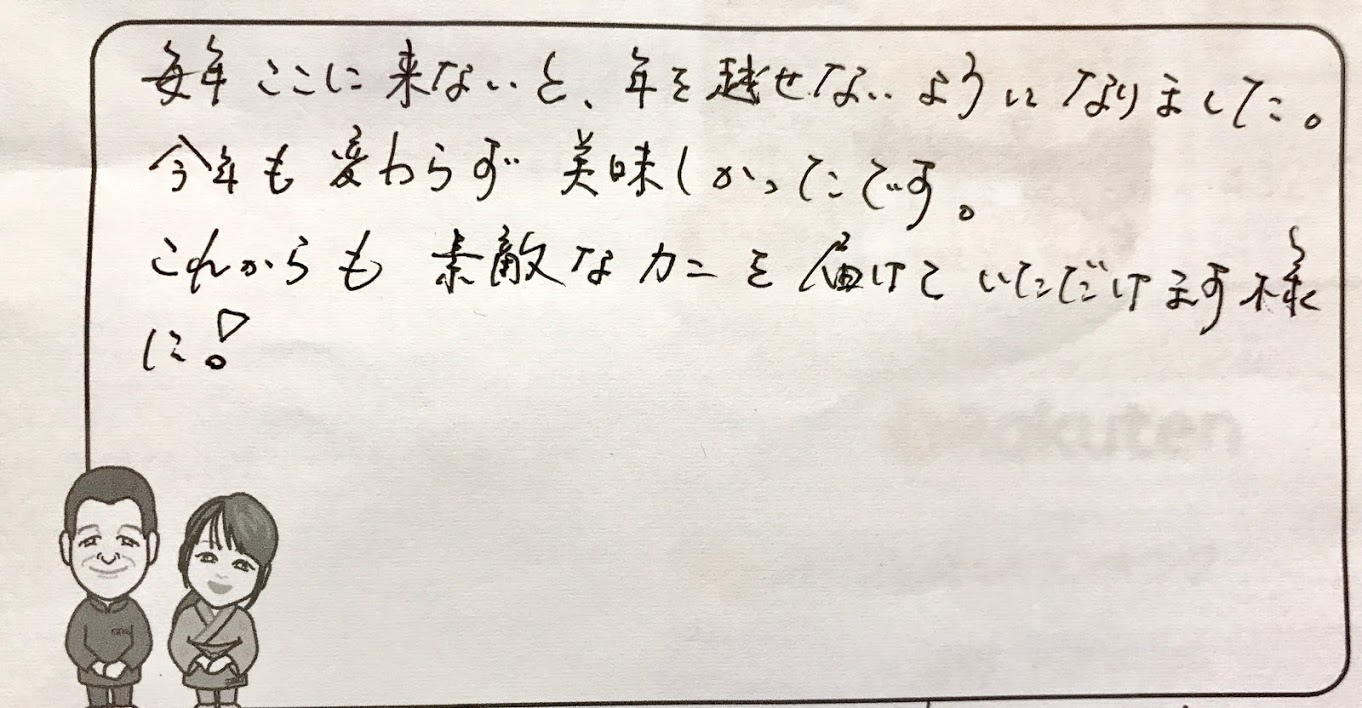 毎年ここに来ないと、年を越せないようになりました。
今年も変わらず美味しかったです。
これからも素敵なカニを届けていただけます様
に！